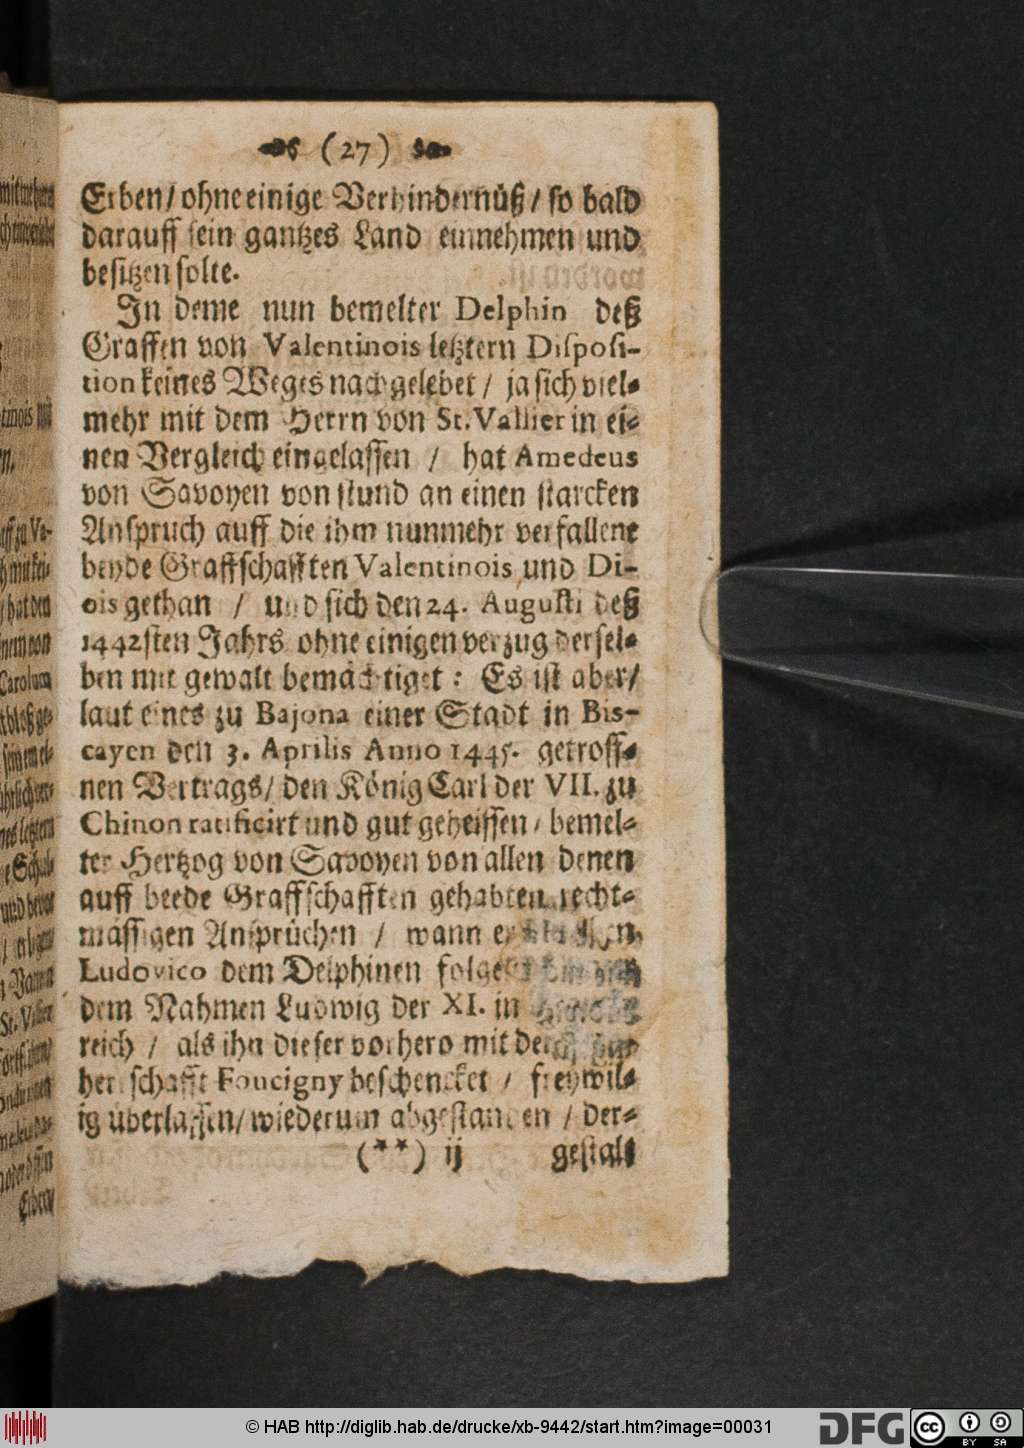 (27)
Erben/ ohne einige Verhindernüß/ so bald
darauff sein gantzes Land einnehmen und
besitzen solte.
In deme nun bemelter Delphin deß
Graffen von Valentinois letztern Disposi-
tion keines Weges nachgelebet / ja sich viel-
mehr mit dem Herrn von St. Vallier in ei-
nen Vergleich eingelassen / hat Amedeus
von Savoyen von stund an einen starcken
Anspruch auff die ihm nunmehr verfallene
beyde Graffschafften Valentinois und Di-
ois gethan / und sich den 24. Augusti deß
1442sten Jahrs ohne einigen verzug dersel-
ben mit gewalt bemächtiget: Es ist aber/
laut eines zu Bajona einer Stadt in Bis-
cayen den 3. Aprilis Anno 1445. getroff-
nen Vertrags/ den König Carl der VII. zu
Chinon ratificirt und gut geheissen / bemel-
ter Hertzog von Savoyen von allen denen
auff beede Graffschafften gehabten recht-
mässigen Ansprüchen / wann er
Ludovico dem Delphinen
dem Nahmen Ludwig der XI. in
reich / als ihn dieser vorhero mit
herrschafft Foucigny beschencket / freywil-
ig überlassen/ wiederum abgestanden / der-
(**) ij gestalt
© HAB http://diglib.hab.de/drucke/xb-9442/start.htm?image=00031
DFG
cc BY SA